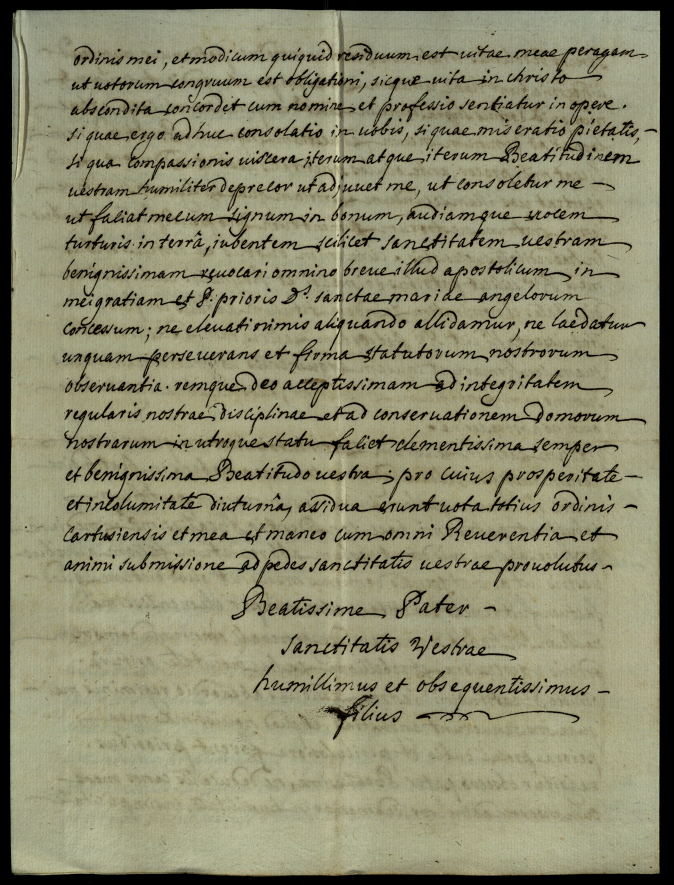 ordinis mei, et modicum quiquid residuum est vitae meae peragam
ut votorum congruum est obligationi, sicque vita in christo
abscondita concordet cum nomine et professio sentiatur in opere.
si quae ergo adhuc consolatio in vobis, si quae miseratio pietatis,
si qua compassionis viscera iterum atque iterum Beatitudinem
vestram humiliter deprecor ut adjuvet me, ut consoletur me
ut faciat mecum signum in bonum, audiamque vocem
turturis in terrâ, iubentem scilicet sanctitatem vestram
benignissimam revocari omnino breve illud apostolicum in
mei gratiam et P. prioris Ds. sanctae mariae angelorum
concessum; ne elevati nimis aliquando allidamur, ne laedatur
unquam perseverans et firma statutorum nostrorum
observantia. remque deo acceptissimam ad integritatem
regularis nostrae disciplinae et ad conservationem domorum
nostrarum in utroque statu faciet clementissima semper
et benignissima Beatitudo vestra; pro cuius prosperitate
et incolumitate diuturnâ, assidua erunt vota totius ordinis
Cartusiensis et mea et maneo cum omni Reverentia et
animi submissione ad pedes sanctitatis vestrae provolutus
Beatissime Pater
sanctitatis Vestrae
humillimus et obsequentissimus
filius